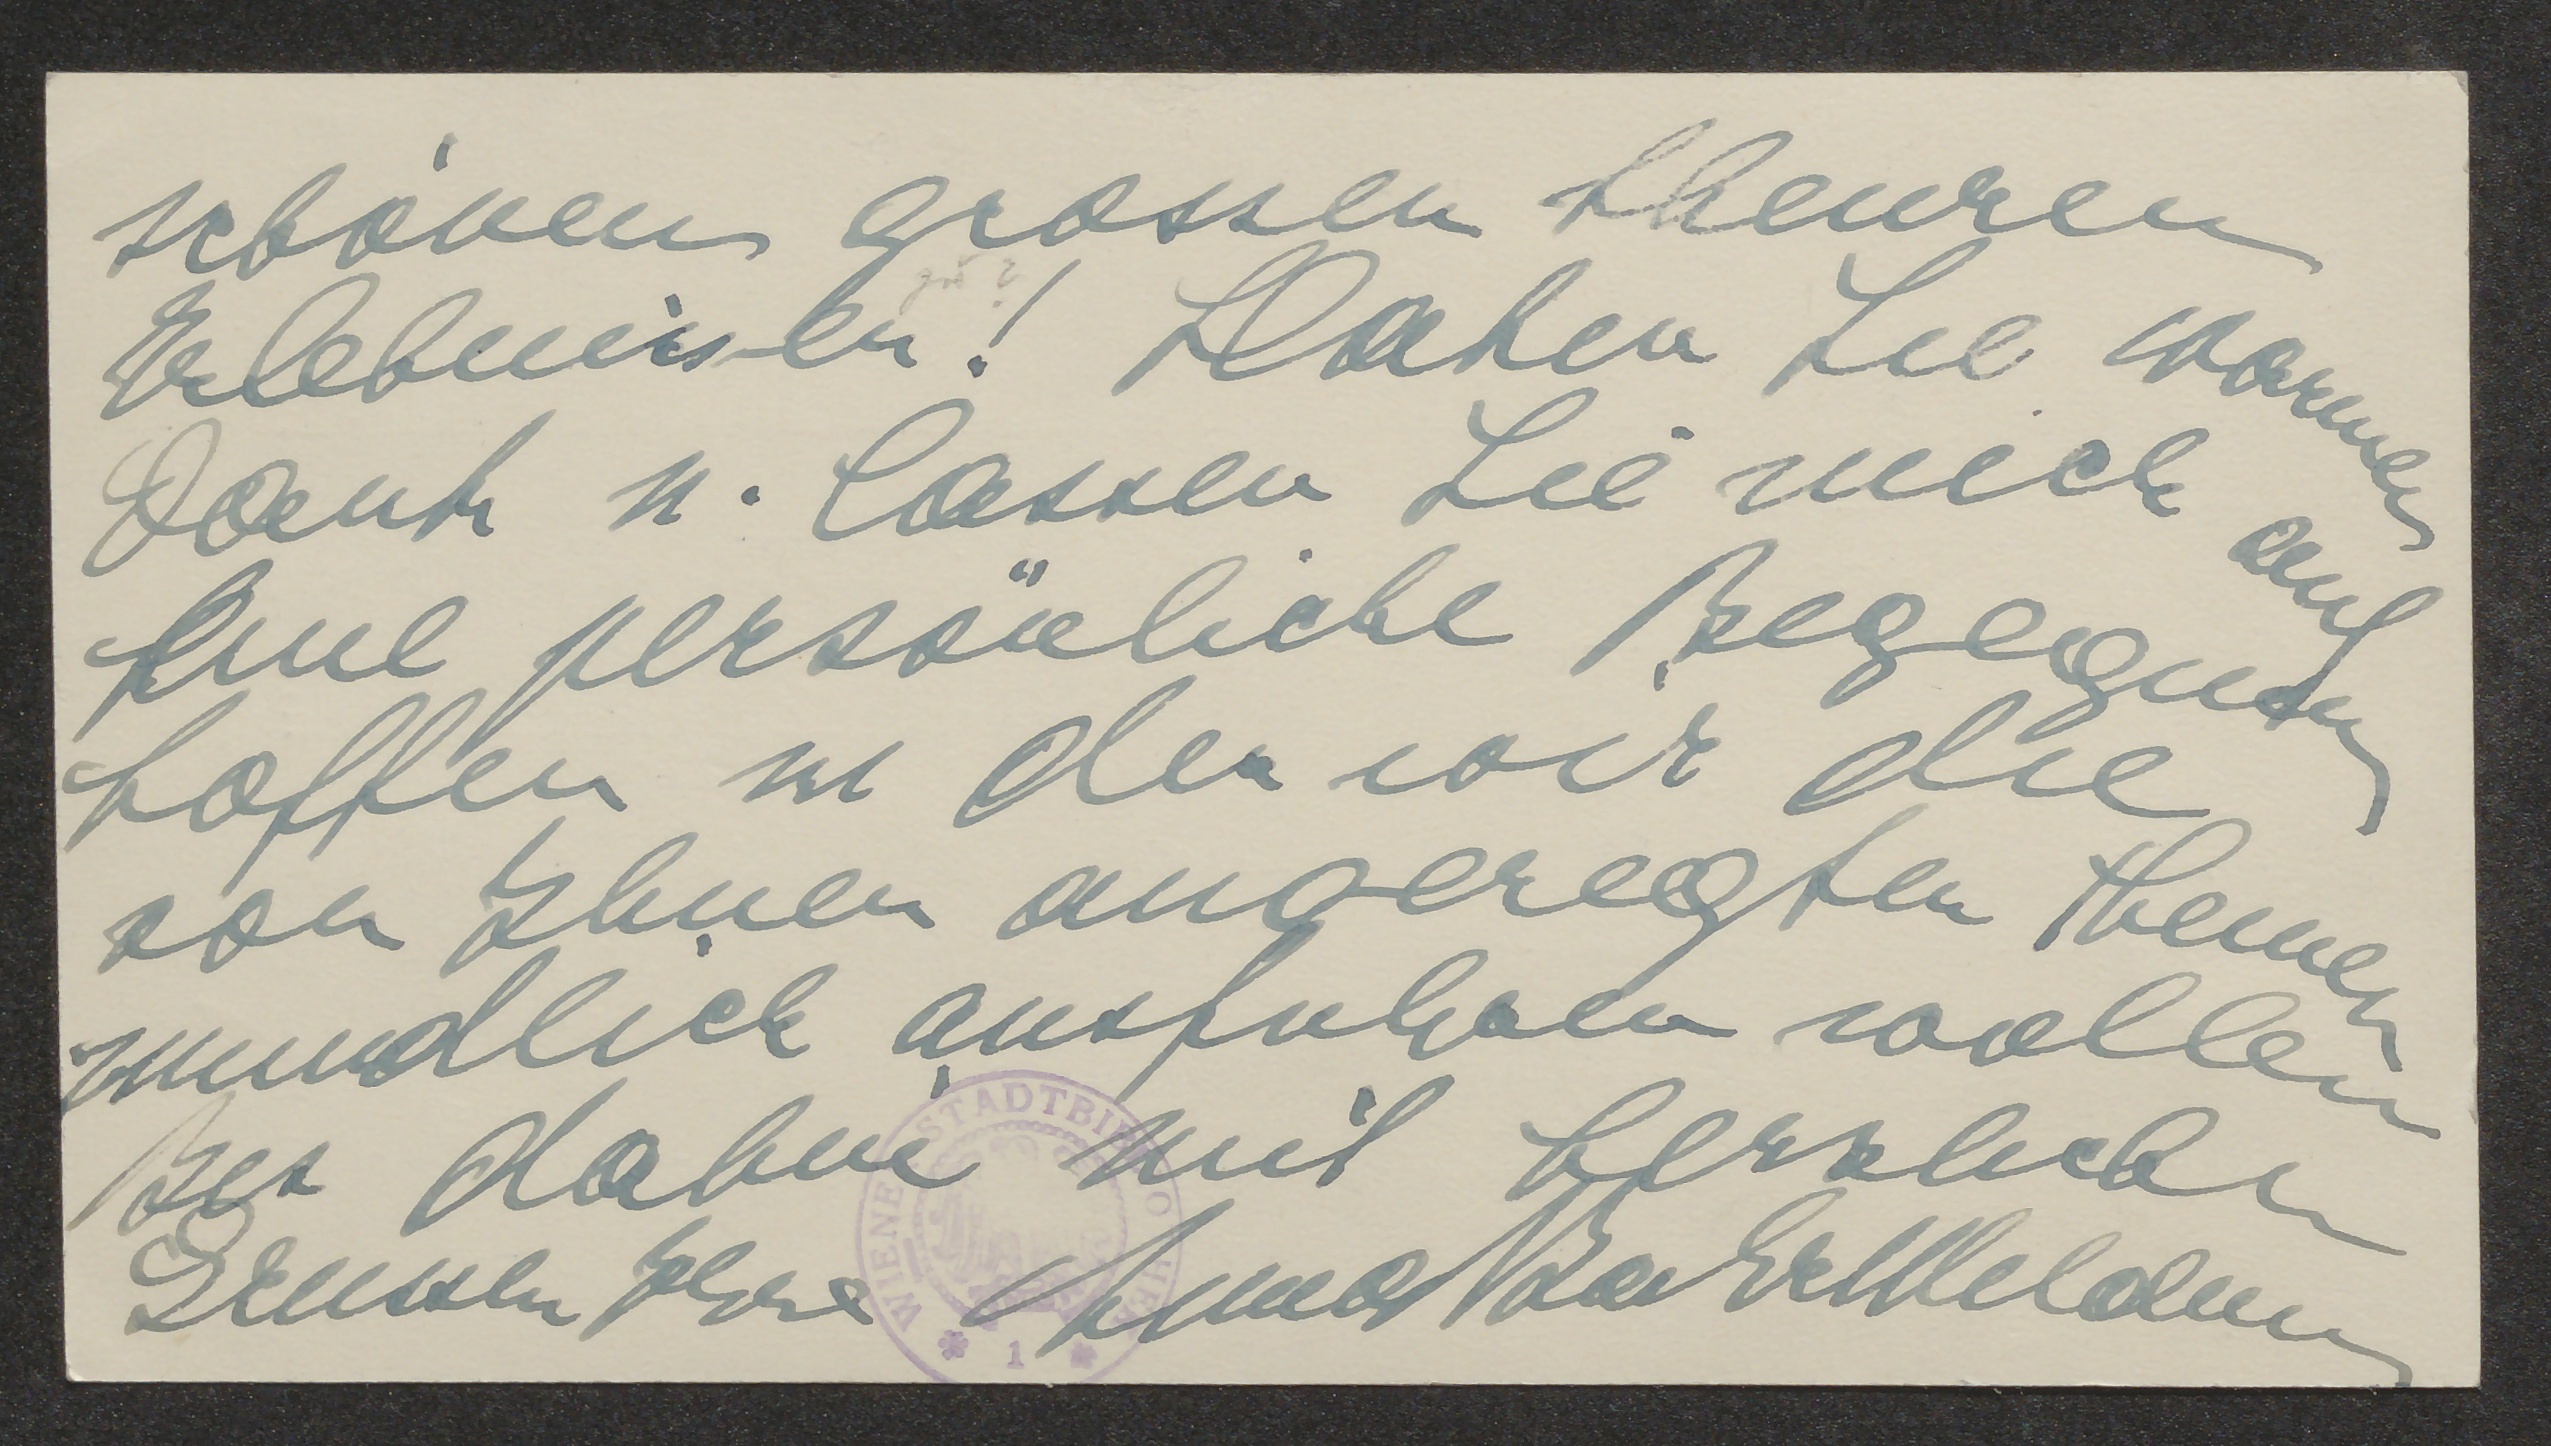 schönen grossen theuren
Erlebnissen! Haben Sie warmen
Dank u. lassen Sie mich auf
eine persönliche Begegnung
hoffen in der wir die
von Ihnen angeregten Themen
mundlich ausfuhren wollen
Bis dahin mit herzlichen
Grussen Ihre Anna Bahr Mildenburg
WIENER STADTBIBLIOTHEK
1